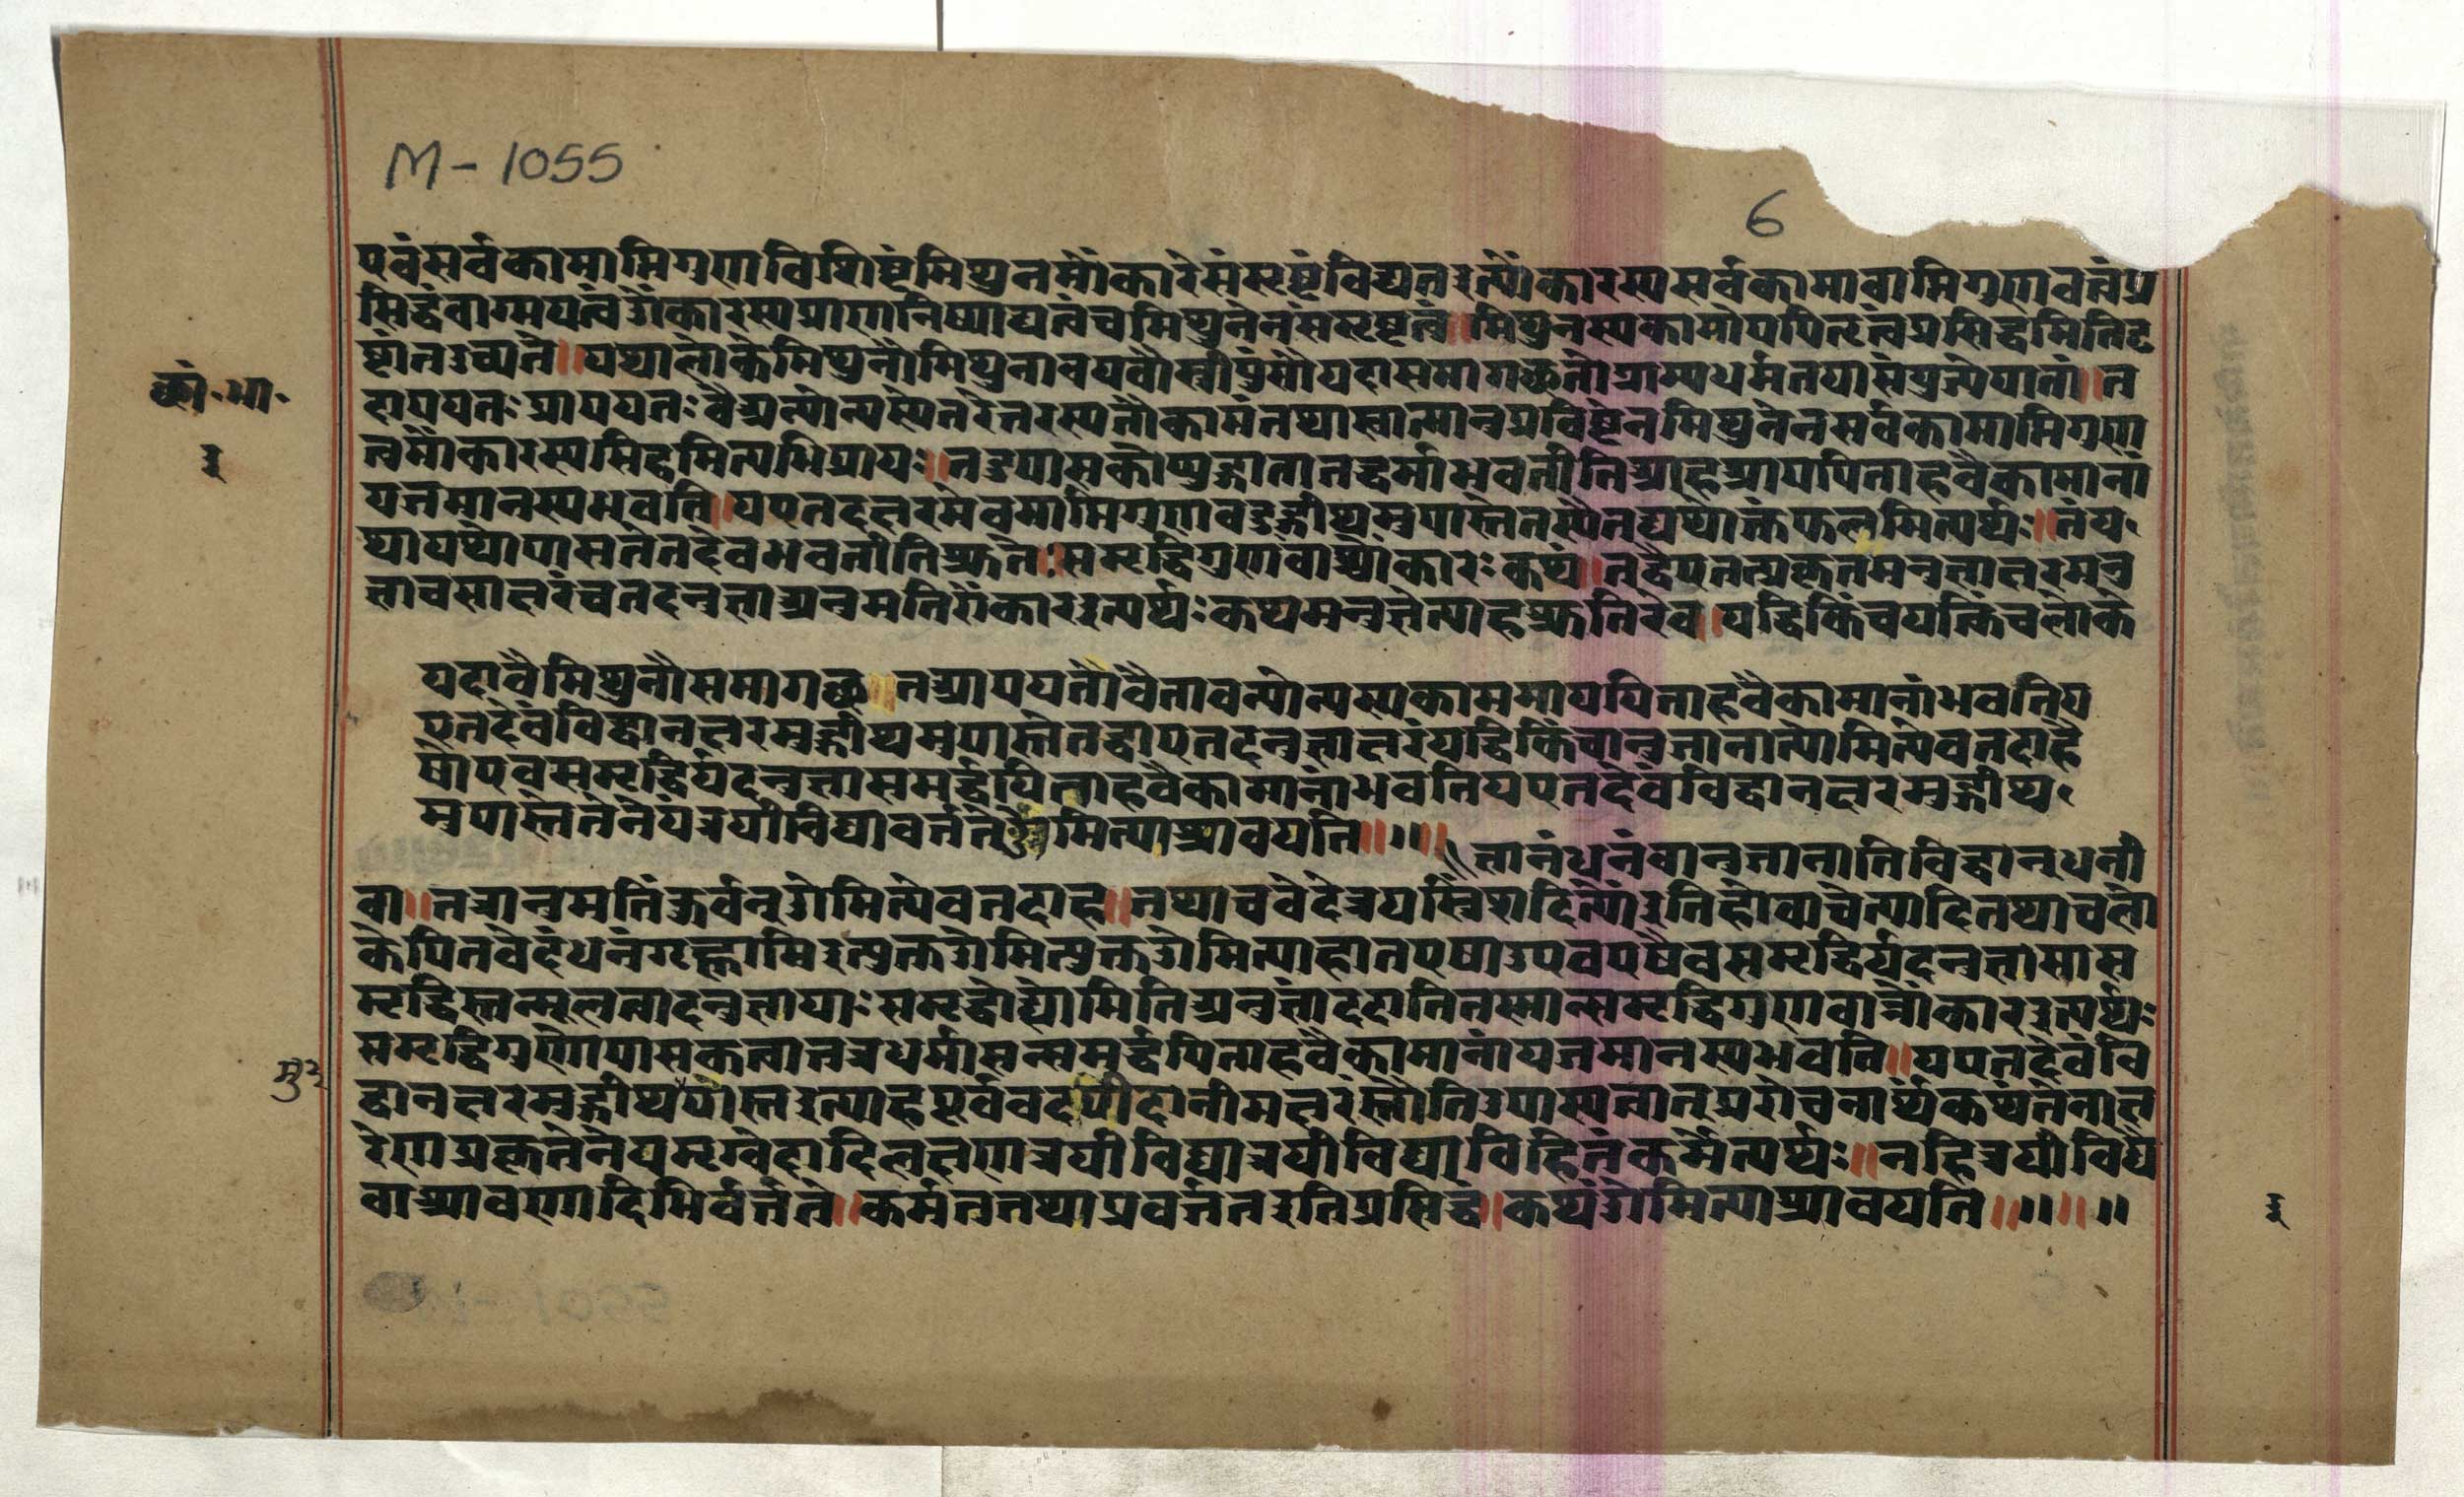 M-1055
6
एवंसर्वकामाप्तिगुणविशिष्टंमिथुनमोंकारेसंसृष्टंविद्यतइत्योंकारस्यसर्वकामावाप्तिगुणवत्वंप्र
सिद्धंवाग्मयत्वंओंकारस्यप्राणनिष्पाद्यत्वंचमिथुनेनसंसृष्टत्वं॥मिथुनस्यकामापयितृत्वंप्रसिद्धमितिदृ
ष्टांतउच्यते॥यथालोकेमिथुनौमिथुनावयवौस्त्रीपुंसौयदासमागच्छतोग्राम्यधर्मतयासंयुज्येयातां॥त
दापयतः प्रापयतः वैअन्योन्यस्येतरेतरस्यतौकामंतथास्वात्मानुप्रविष्टेनमिथुनेनसर्वकामाप्तिगुण
त्वमोंकारस्यसिद्धमित्यभिप्रायः॥तदुपासकोप्युद्गातातद्धर्माभवतीतिआहआपयिताहवैकामानां
यजमानस्यभवति॥यएतदक्षरमेवमाप्तिगुणवदुद्गीथमुपास्तेतस्यैतद्यथोक्तंफलमित्यर्थः॥तंय
थायथोपासतेतदेवभवतीतिश्रुतेः॥समृद्धिगुणवांश्चोंकारः कथं॥तद्वैएतत्प्रकृतमनुज्ञाक्षरमनु
ज्ञाचसाक्षरंचतदनुज्ञाअनुमतिरोंकारइत्यर्थः कथमनुज्ञेत्याहश्रुतिरेव॥यद्धिकिंचयत्किंचलोके
यदावैमिथुनौसमागच्छ॥तआपयतोवैतावन्योन्यस्यकाममापयिताहवैकामानांभवतिय
एतदेवंविद्वानक्षरमुद्गीथमुपास्तेतद्वाएतदनुज्ञाक्षरंयद्धिकिंचानुजानात्योमित्येवतदाहै
षोएवसमृद्धिर्यदनुज्ञासमर्द्धयिताहवैकामानांभवतियएतदेवंविद्वानक्षरमुद्गीथ
मुपास्तेतेनेयंत्रयीविद्यावर्ततेओमित्याश्रावयति॥॥॥
ज्ञानंधनंवानुजानातिविद्वान्धनी
वा॥तत्रानुमतिंकुर्वन्ओमित्येवतदाह॥तथाचवेदेत्रयस्त्रिंशदित्योंइतिहोवाचेत्यादितथाचलो
केपितवेदंधनंगृह्णामिइत्युक्तओमित्युक्तओमित्याहातएषाउएवएषैवसमृद्धिर्यदनुज्ञासास
मृद्धिस्तन्मूलत्वादनुज्ञायाः समृद्धोह्योमितिअनुज्ञांददातितस्मात्समृद्धिगुणवानोंकारइत्यर्थः
समृद्धिगुणोपासकत्वात्तत्रधर्मासन्समर्द्धयिताहवैकामानांयजमानस्यभवति॥यएतदेवंवि
द्वानक्षरमुद्गीथमुपास्तइत्याहपूर्ववदथेदानीमक्षरंस्तौतिउपास्यत्वात्प्ररोचनार्थंकथंतेनाक्ष
रेणप्रकृतेनेयमृग्वेदादिलक्षणात्रयीविद्यात्रयीविद्याविहितंकर्मेत्यर्थः॥नहित्रयीविद्यै
वाश्रावणादिभिर्वर्त्तते॥कर्मतुतथाप्रवर्त्ततइतिप्रसिद्धं॥कथंओमित्याश्रावयति॥॥॥॥
छां.भा.
इ
मु २
इ